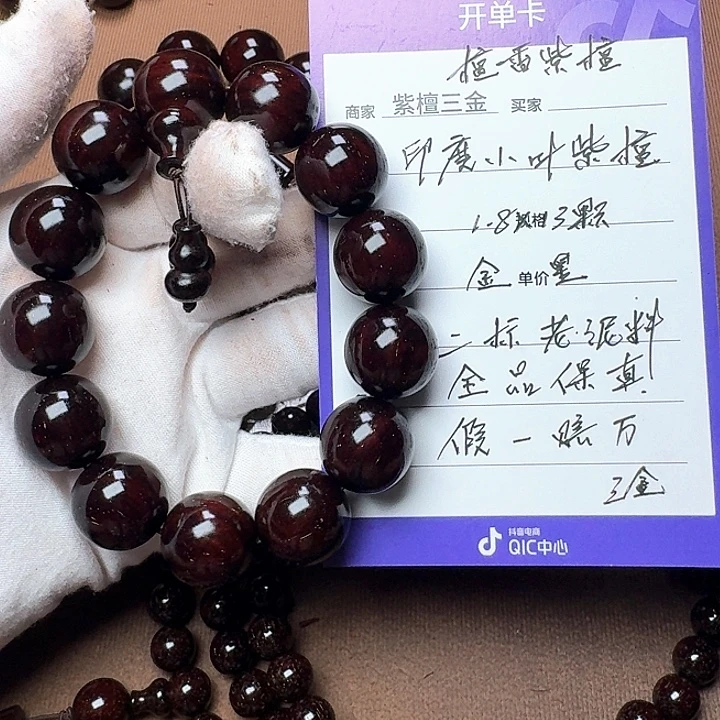 开单卡
檀香紫檀
商家 紫檀三金 买家
印度小叶紫檀
1.8 规格 13颗
金 单价 星
二标老泥料
全品保真
假一赔万
三金
抖音电商
QIC中心